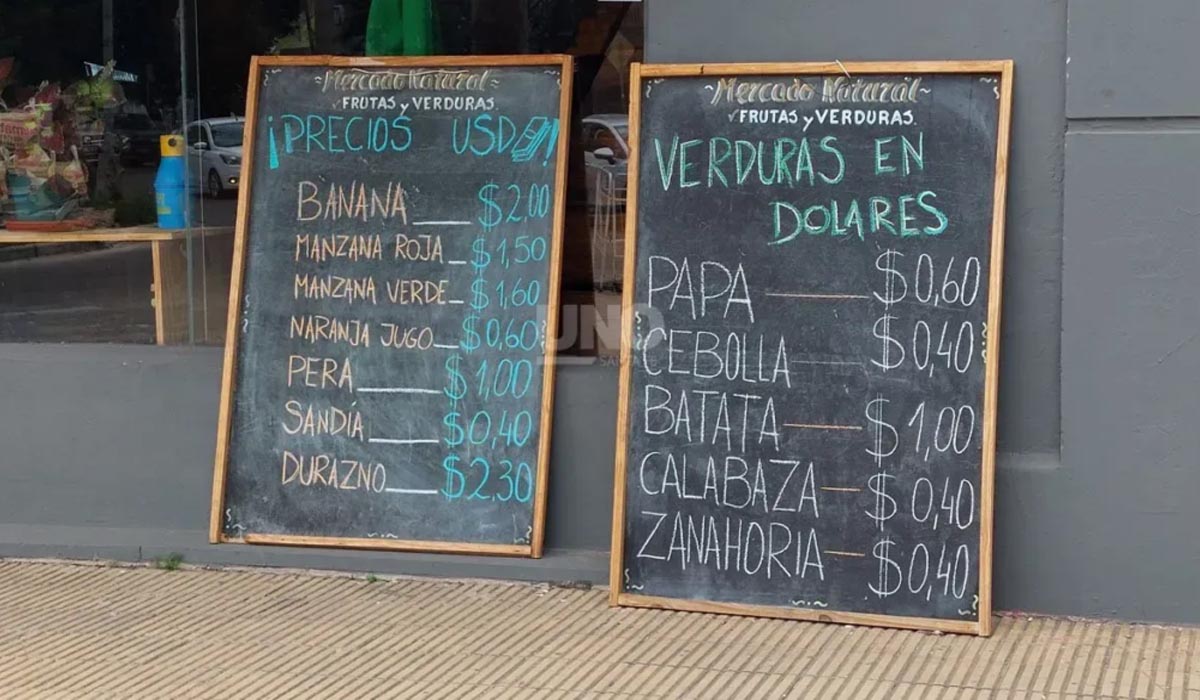 ~Mercado Natural~
FRUTAS y VERDURAS.
¡PRECIOS USD!
BANANA $2,00
MANZANA ROJA $1,50
MANZANA VERDE $1,60
NARANJA JUGO $0,60
PERA $1,00
SANDÍA $0,40
DURAZNO $2,30
~Mercado Natural~
FRUTAS y VERDURAS.
VERDURAS EN
DOLARES
PAPA $0,60
CEBOLLA $0,40
BATATA $1,00
CALABAZA $0,40
ZANAHORIA $0,40
UNO